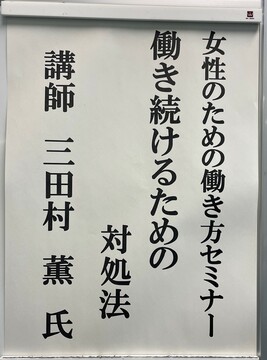 女性のための働き方セミナー
働き続けるための
対処法
講師 三田村 薫 氏